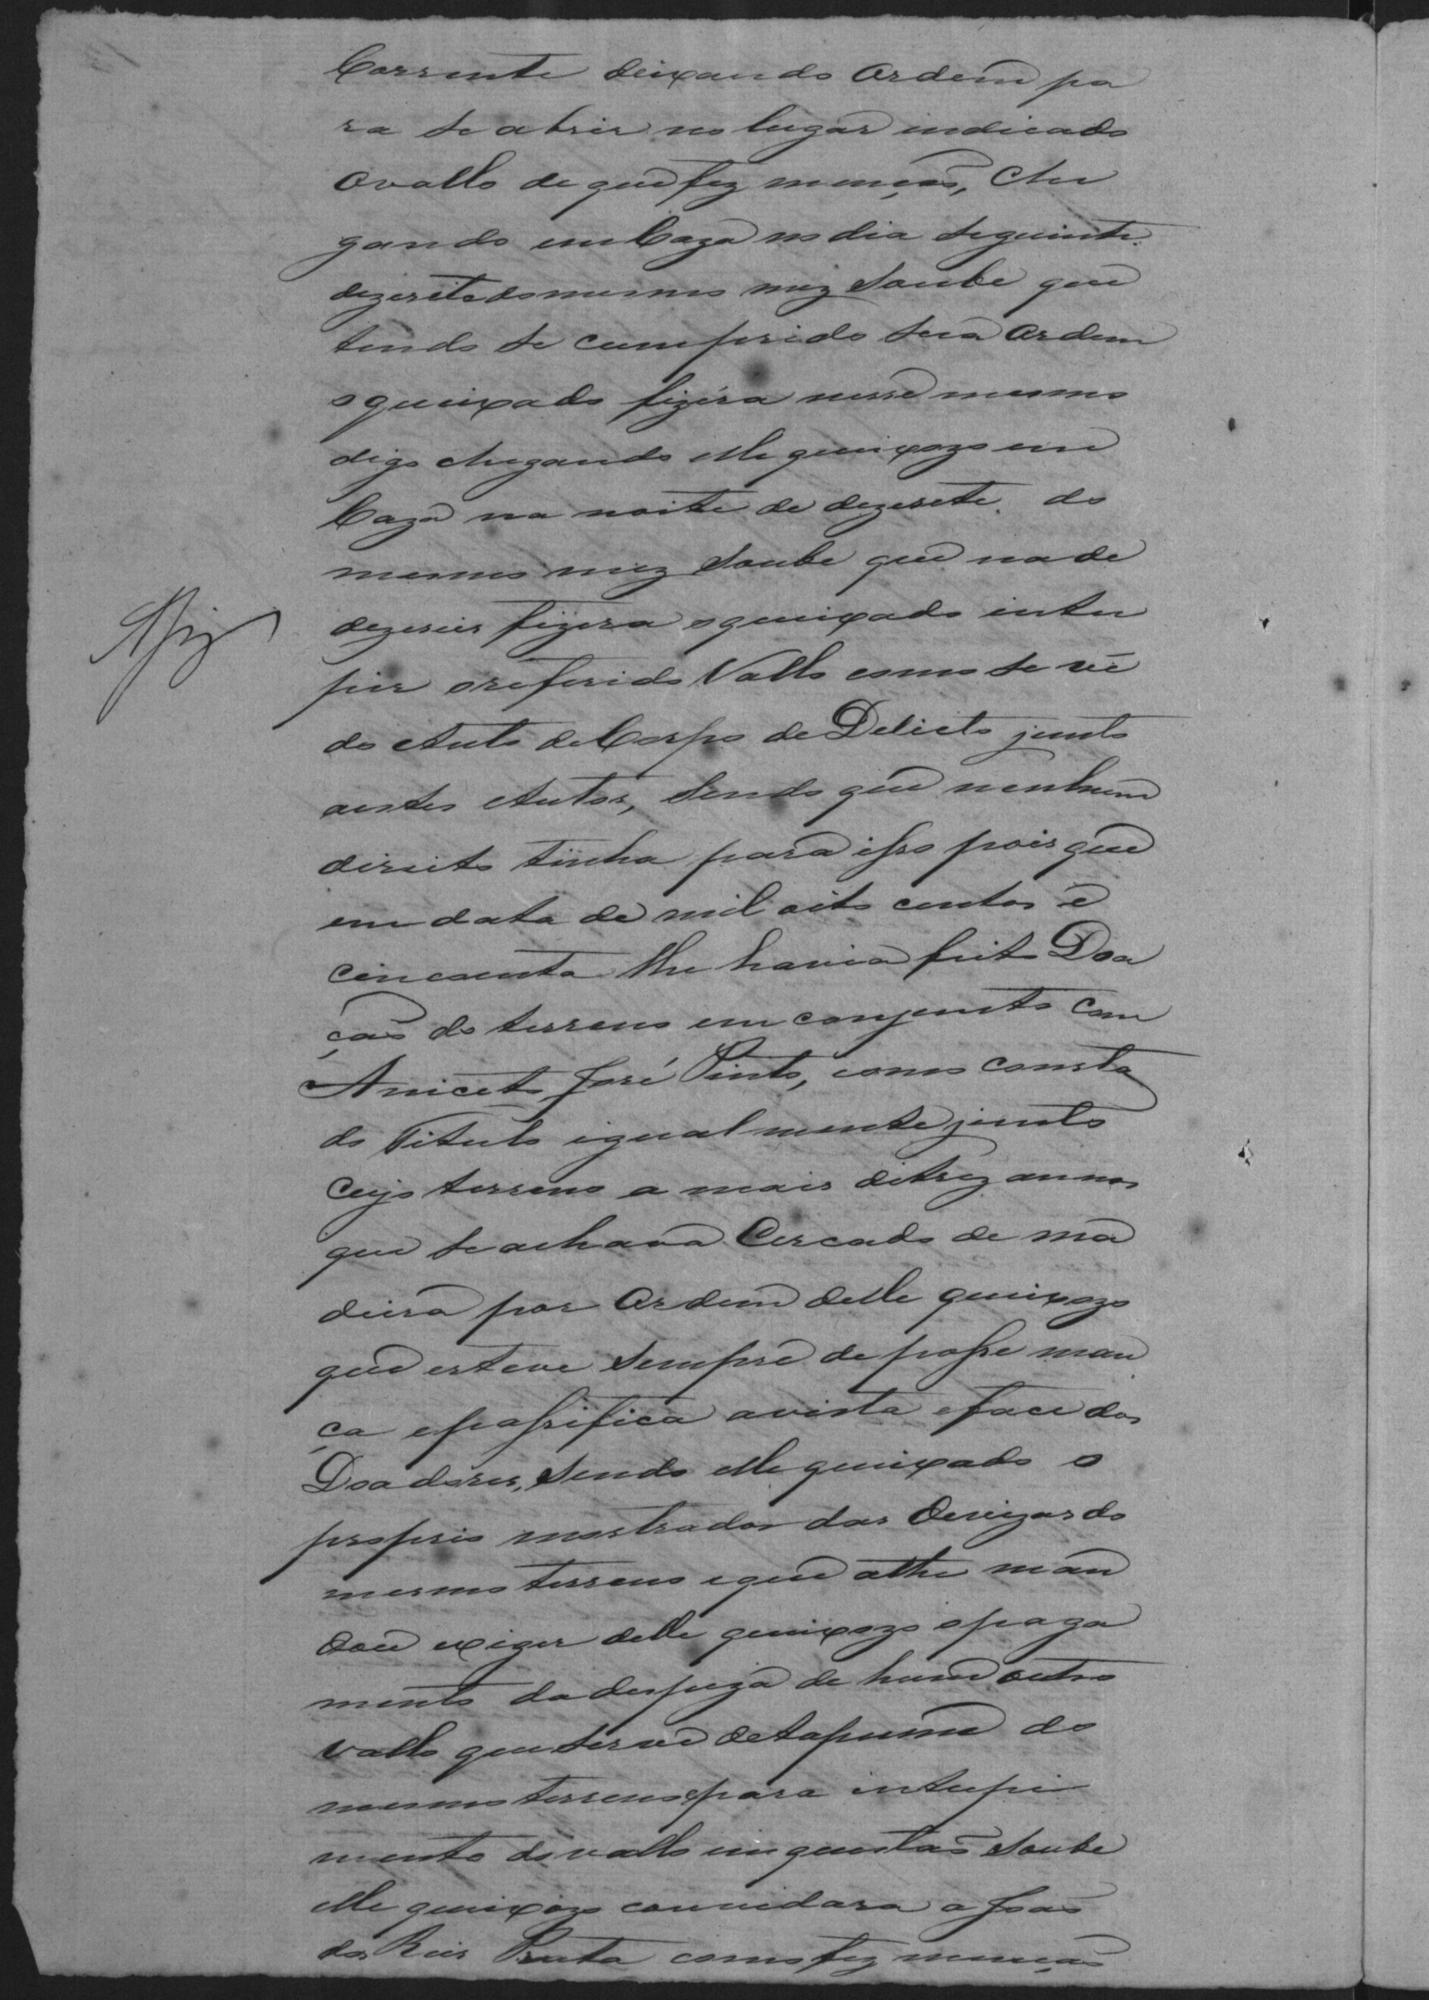 Corrente deixando ordem pa
ra se abrir no lugar indicado
o vallo de que fez menção, Che
gando em Caza no dia seguinte
dezesete do mesmo mez soube que
tendo se cumprido sua ordem
o queixado fizéra nesse mesmo
digo chegando elle queixozo em
Caza na noite de dezesete do
mesmo mez soube que na de
dezeseis fizera o queixado entu
pir o referido Vallo como se vê
do Auto de Corpo de Delicto junto
aestes Autos, sendo que nenhum
direito tinha para isso pois que
em data de mil oito centos e
cincoenta lhe havia feito Doa
ção do terreno em conjunto com
Aniceto José Pinto, como consta
do Titulo igualmente junto
Cujo terreno a mais de trez annos
que se achava Cercado de ma
deira por ordem delle queixozo
que esteve sempre de posse man
ça e passifica a vista e face dos
Doadores, sendo elle queixado o
proprio mostrador das devizas do
mesmo terreno e que athe man
dou exigir delle queixozo o paga
mento da despeza de hum outro
vallo que serve de tapume do
mesmo terreno para intupi
mento do vallo em questão soube
elle queixozo convidara a João
dos Reis Prata como fez menção